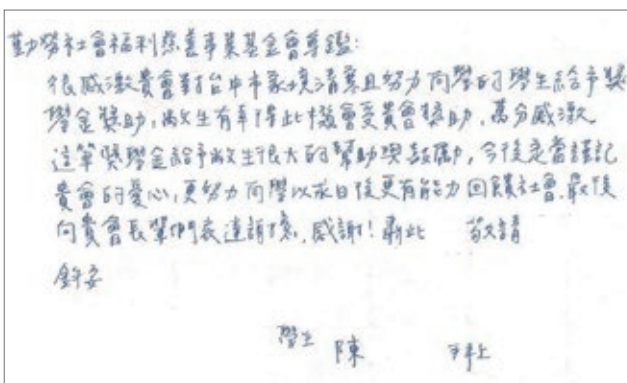 勤勞社會福利慈善事業基金會尊鑑:
很感激貴會對台中市家境清寒且努力向學的學生給予獎
學金獎助,敝生有幸得此機會受貴會獎助,萬分感激
這筆獎學金給予敝生很大的幫助與鼓勵,今後定當謹記
貴會的愛心,更努力向學以求日後更有能力回饋社會.最後
向貴會長輩們表達謝意,感謝!耑此 敬請
鈞安
學生 陳 拜上